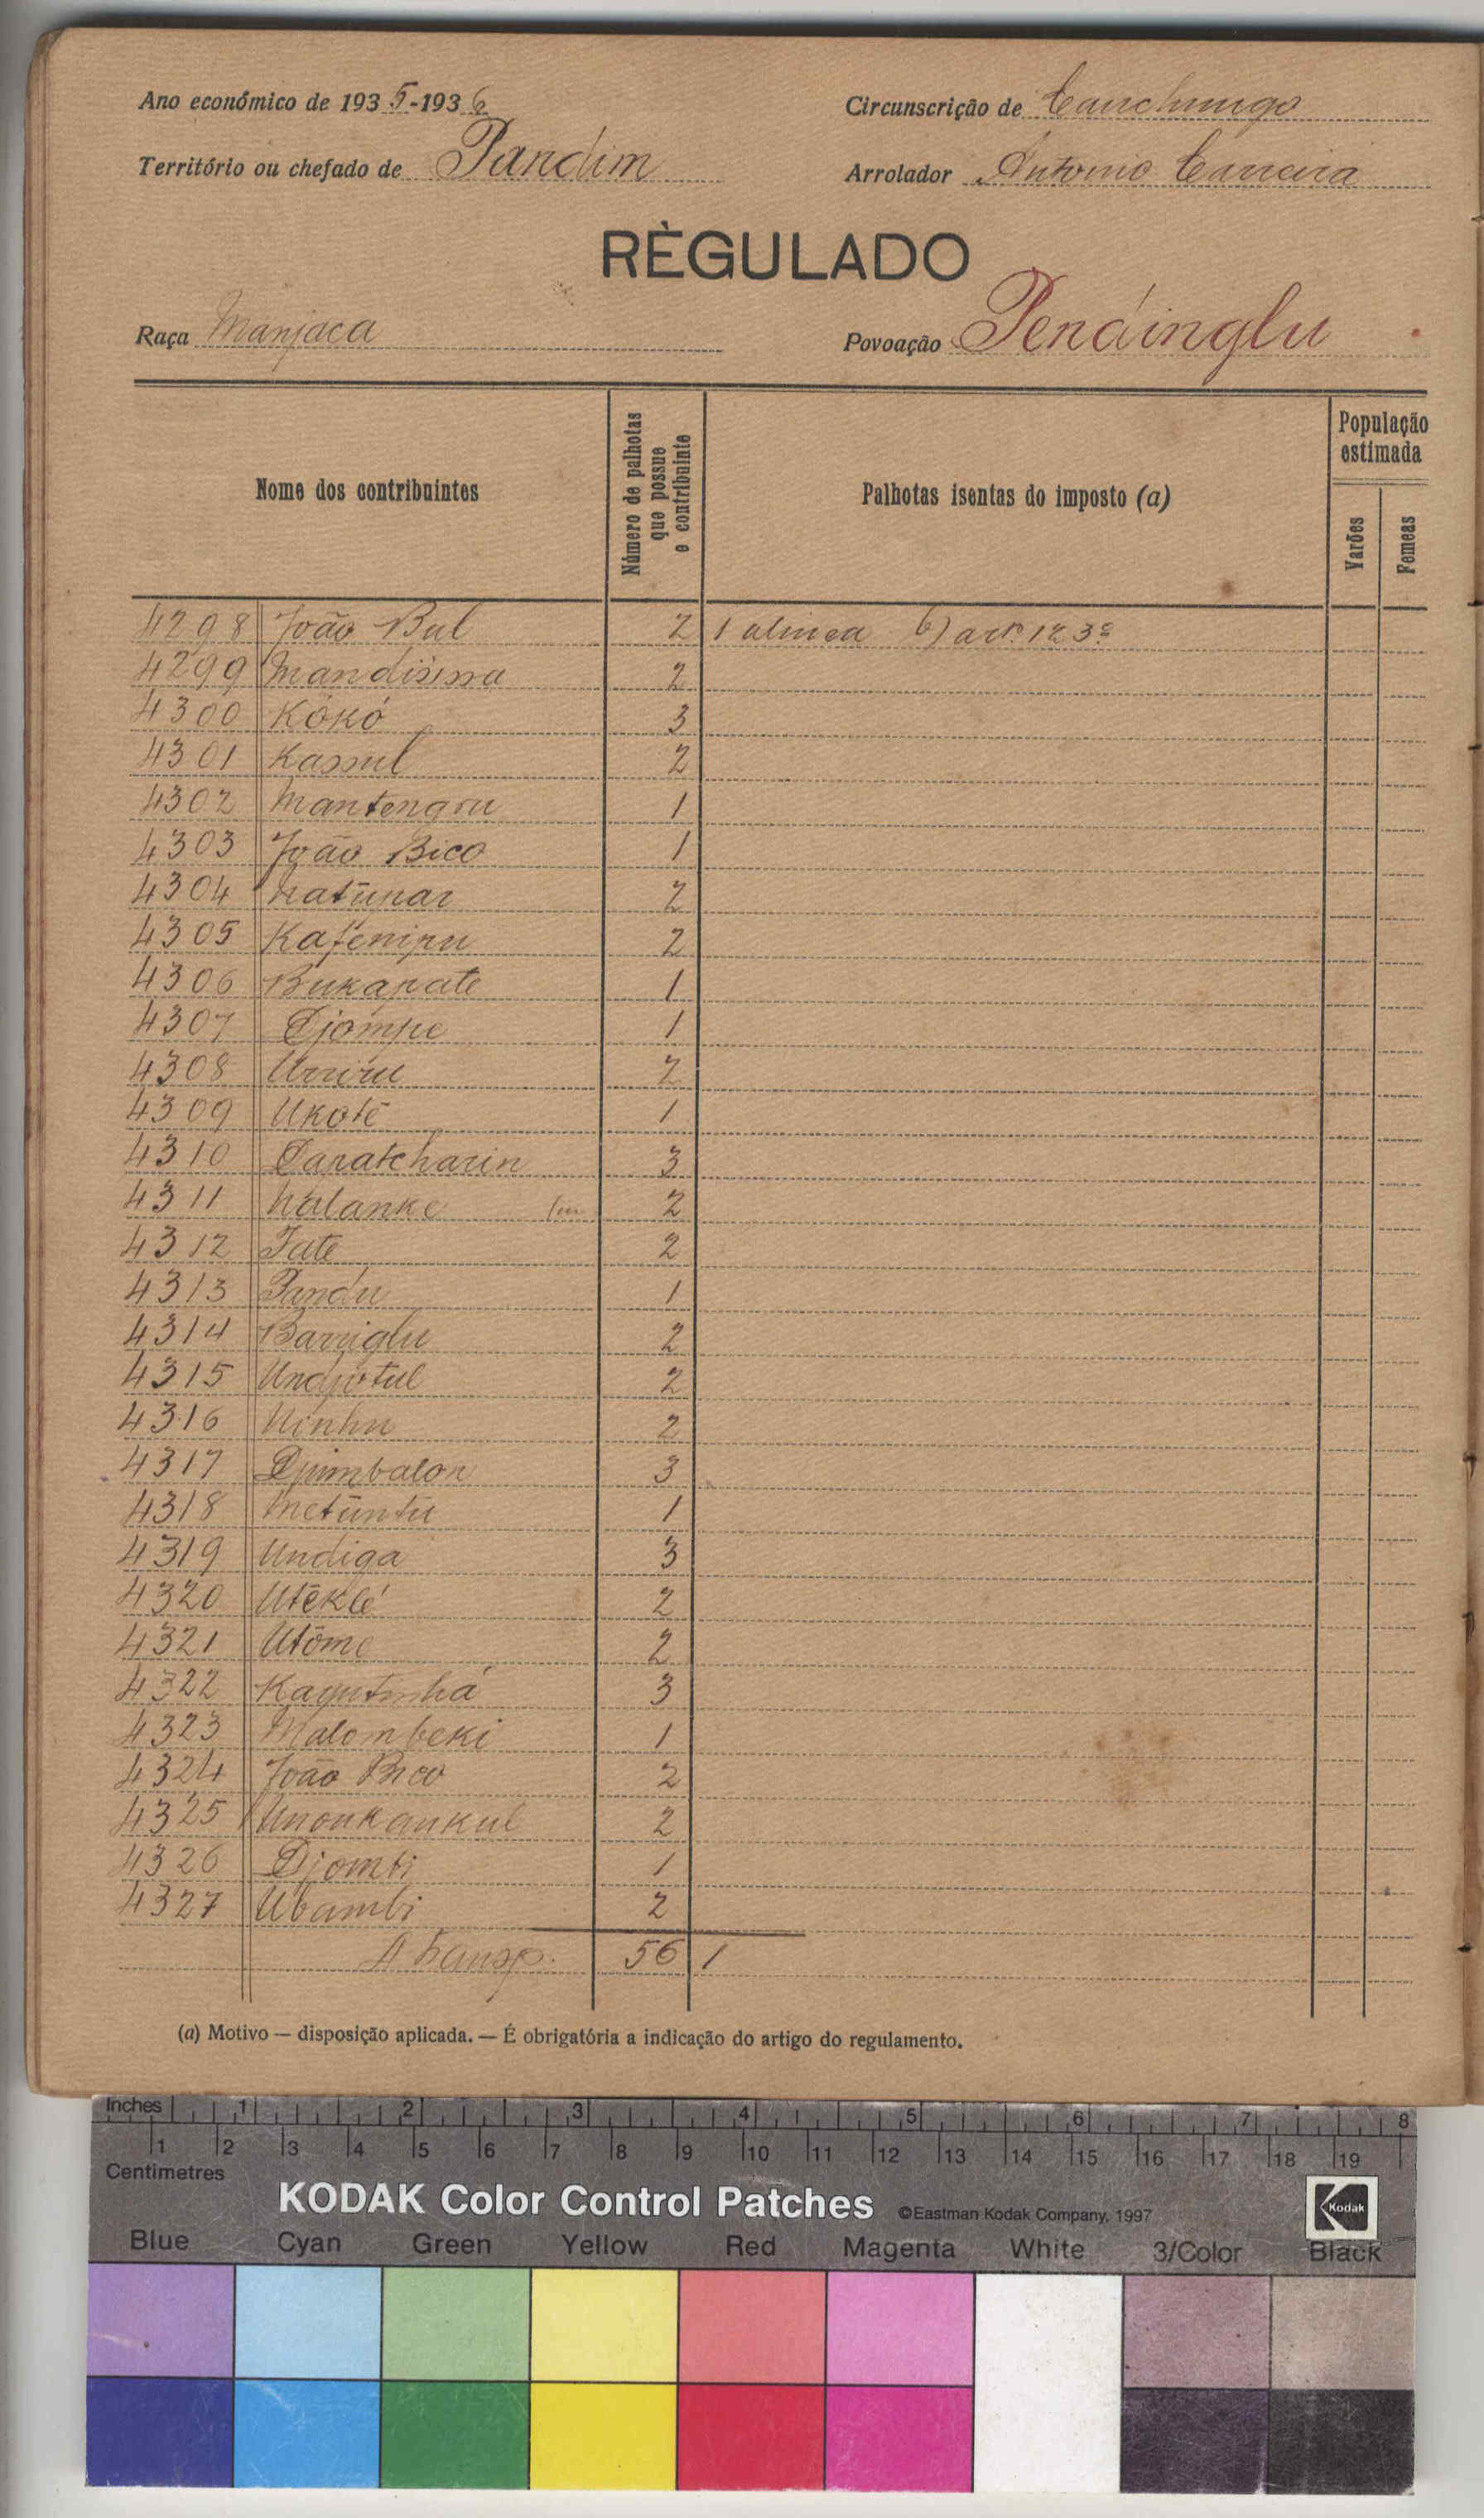 Ano económico de 1935-1936
Circunscrição de Canchungo
Território ou chefado de Pandim
Arrolador Antonio Carreira
RÈGULADO
Raça Manjaca
Povoação Pendinglu
Nome dos contribuintes
Número de palhotas que possue o contribuinte
Palhotas isentas do imposto (a)
População estimada
Varões
Femeas
4298 João Bul 2 1 alinea b) artº 123º
4299 Mandissna 2
4300 Kókó 3
4301 Kassul 2
4302 Mantengru 1
4303 João Bico 1
4304 Natupar 2
4305 Kafenipu 2
4306 Bukapate 1
4307 Djompe 1
4308 2
4309 Ukotê 1
4310 Daratcharin 3
4311 Nalanke 2
4312 Fate 2
4313 Pandu 1
4314 Barriglu 2
4315 Undjotul 2
4316 Uinhu 2
4317 Djimbalon 3
4318 Metuntu 1
4319 Undiga 3
4320 Utêklé 2
4321 Utôme 2
4322 3
4323 Malombeki 1
4324 João Bico 2
4325 Unoukankul 2
4326 Djombi 1
4327 Ubambi 2
A transp. 56 1
(a) Motivo — disposição aplicada. — É obrigatória a indicação do artigo do regulamento.
Inches 1 2 3 4 5 6 7 8
1 2 3 4 5 6 7 8 9 10 11 12 13 14 15 16 17 18 19
Centimetres
KODAK Color Control Patches ©Eastman Kodak Company, 1997 Kodak
Blue Cyan Green Yellow Red Magenta White 3/Color Black